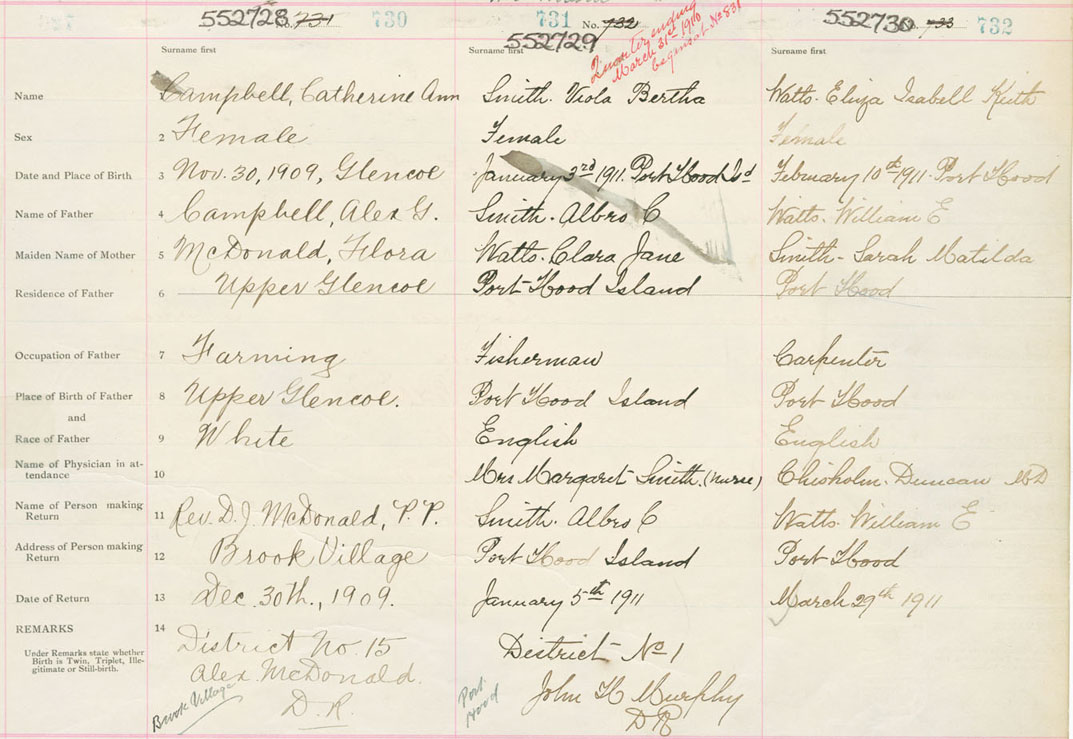 552728 No. 731 730 731 No. 732 552730 733 732
552729
Quarter ending
March 31st 1910
begins at No 831
Surname first Surname first Surname first
Name Campbell, Catherine Ann Smith. Viola Bertha Watts. Eliza Isabell Keith
Sex 2 Female Female Female
Date and Place of Birth 3 Nov. 30, 1909, Glencoe January 3rd 1911. Port Hood Isd February 10th 1911. Port Hood
Name of Father 4 Campbell, Alex G. Smith. Albro C Watts. William E
Maiden Name of Mother 5 McDonald, Flora Watts. Clara Jane Smith - Sarah Matilda
Residence of Father 6 Upper Glencoe Port Hood Island Port Hood
Occupation of Father 7 Farming Fisherman Carpenter
Place of Birth of Father 8 Upper Glencoe. Port Hood Island Port Hood
and
Race of Father 9 White English English
Name of Physician in at-
tendance 10 Mrs Margaret Smith (nurse) Chisholm. Duncan MD
Name of Person making
Return 11 Rev. D. J. McDonald, P. P. Smith. Albro C Watts. William E
Address of Person making
Return 12 Brook Village Port Hood Island Port Hood
Date of Return 13 Dec. 30th., 1909. January 5th 1911 March 29th 1911
REMARKS 14 District No. 15 District No 1
Under Remarks state whether
Birth is Twin, Triplet, Ille-
gitimate or Still-birth.
Alex. McDonald. John H Murphy
D. R. DR
Brook Village Port
Hood